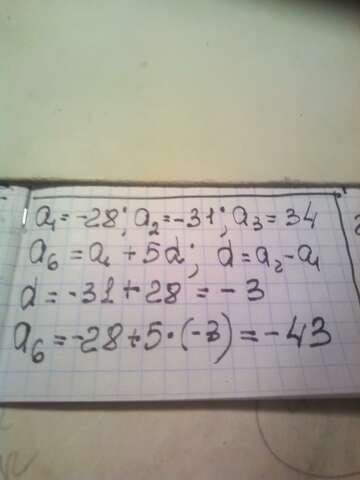 a₁=-28; a₂=-31; a₃=34
a₆=a₁+5d; d=a₂-a₁
d=-31+28=-3
a₆=-28+5·(-3)=-43